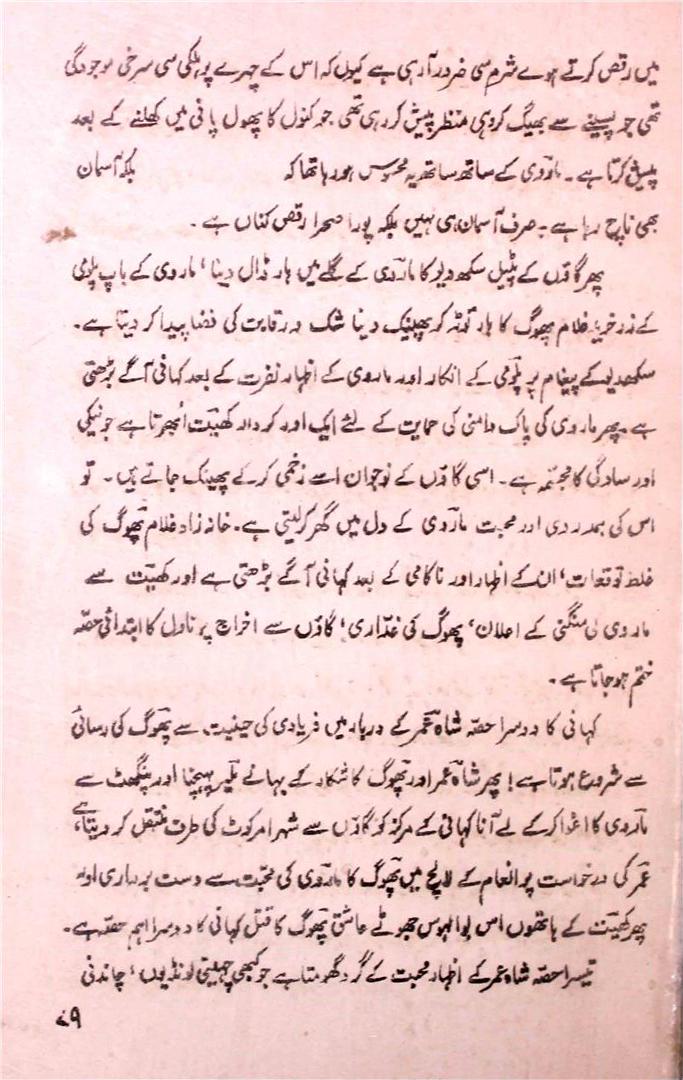 میں رقص کرتے ہوے شرم سی ضرور آرہی ہے کیوں کہ اس کے چہرے پر ہلکی سی سرخی موجود گی
تھی جو پسینے سے بھیگ کر وہی منظر پیش کر رہی تھی جو کنول کا پھول پانی میں کھلنے کے بعد
پیش کرتا ہے۔ ماروی کے ساتھ ساتھ یہ محسوس ہو رہا تھا کہ بلکہ آسمان
بھی ناچ رہا ہے۔ صرف آسمان ہی نہیں بلکہ پورا صحرا رقص کناں ہے۔
پھر گاؤں کے پٹیل سکھ دیو کا ماروی کے گلے میں ہار ڈال دینا، ماروی کے باپ پلومی
کے زر خرید غلام پھوگ کا ہار توڑ کر پھینک دینا شک و رقابت کی فضا پیدا کر دیتا ہے۔
سکھدیو کے پیغام پر پلومی کے انکار اور ماروی کے اظہار نفرت کے بعد کہانی آگے بڑھتی
ہے۔ پھر ماروی کی پاک دامنی کی حمایت کے لئے ایک اور کردار کھیت اُبھرتا ہے جو نیکی
اور سادگی کا مجسّمہ ہے۔ اسی گاؤں کے نوجوان اسے زخمی کر کے پھینک جاتے ہیں۔ تو
اس کی ہمدردی اور محبت ماروی کے دل میں گھر کر لیتی ہے۔ خانہ زاد غلام پھوگ کی
غلط توقعات، ان کے اظہار اور ناکامی کے بعد کہانی آگے بڑھتی ہے اور کھیت سے
ماروی کی منگنی کے اعلان، پھوگ کی غدّاری، گاؤں سے اخراج پر ناول کا ابتدائی حصّہ
ختم ہو جاتا ہے۔
کہانی کا دوسرا حصّہ شاہ عمر کے دربار میں فریادی کی حیثیت سے پھوگ کی رسائی
سے شروع ہوتا ہے! پھر شاہ عمر اور پھوگ کا شکار کے بہانے ملیر پہنچنا اور پنگھٹ سے
ماروی کا اغوا کر کے لے آنا کہانی کے مرکز کو گاؤں سے شہر امرکوٹ کی طرف منتقل کر دیتا ہے،
عمر کی درخواست پر انعام کے لالچ میں پھوگ کا ماروی کی محبت سے دست برداری اور
پھر کھیت کے ہاتھوں اس بوالہوس جھوٹے عاشق پھوگ کا قتل کہانی کا دوسرا اہم حصّہ ہے۔
تیسرا حصّہ شاہ عمر کے اظہار محبت کے گرد گھومتا ہے جو کبھی چہیتی لونڈیوں، چاندنی
۷۹